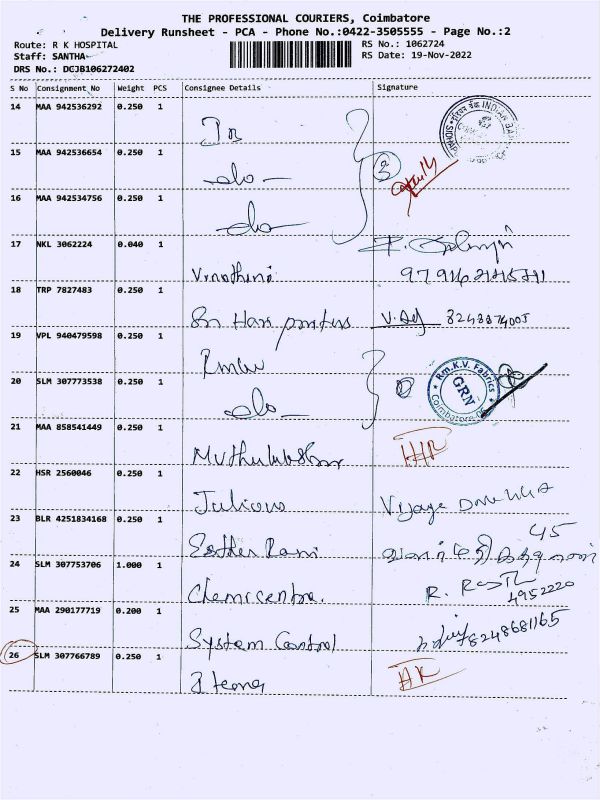 THE PROFESSIONAL COURIERS, Coimbatore
Delivery Runsheet - PCA - Phone No.:0422-3505555 - Page No.:2
Route: R K HOSPITAL
Staff: SANTHA
DRS No.: DCJB106272402
RS No.: 1062724
RS Date: 19-Nov-2022
S No Consignment No Weight PCS Consignee Details Signature
14 MAA 942536292 0.250 1
15 MAA 942536654 0.250 1
-do-
3
16 MAA 942534756 0.250 1
-do-
17 NKL 3062224 0.040 1
Vinothini
18 TRP 7827483 0.250 1
Sri Hari printers
19 VPL 940479598 0.250 1
Rmkv
20 SLM 307773538 0.250 1
-do-
Rm.K.V. Fabrics
GRN
Coimbatore
21 MAA 858541449 0.250 1
Muthulakshmi
22 HSR 2560046 0.250 1
23 BLR 4251834168 0.250 1
Esther Rani
45
24 SLM 307753706 1.000 1
Chemicentra.
4952220
25 MAA 290177719 0.200 1
System Control
8248681165
26 SLM 307766789 0.250 1